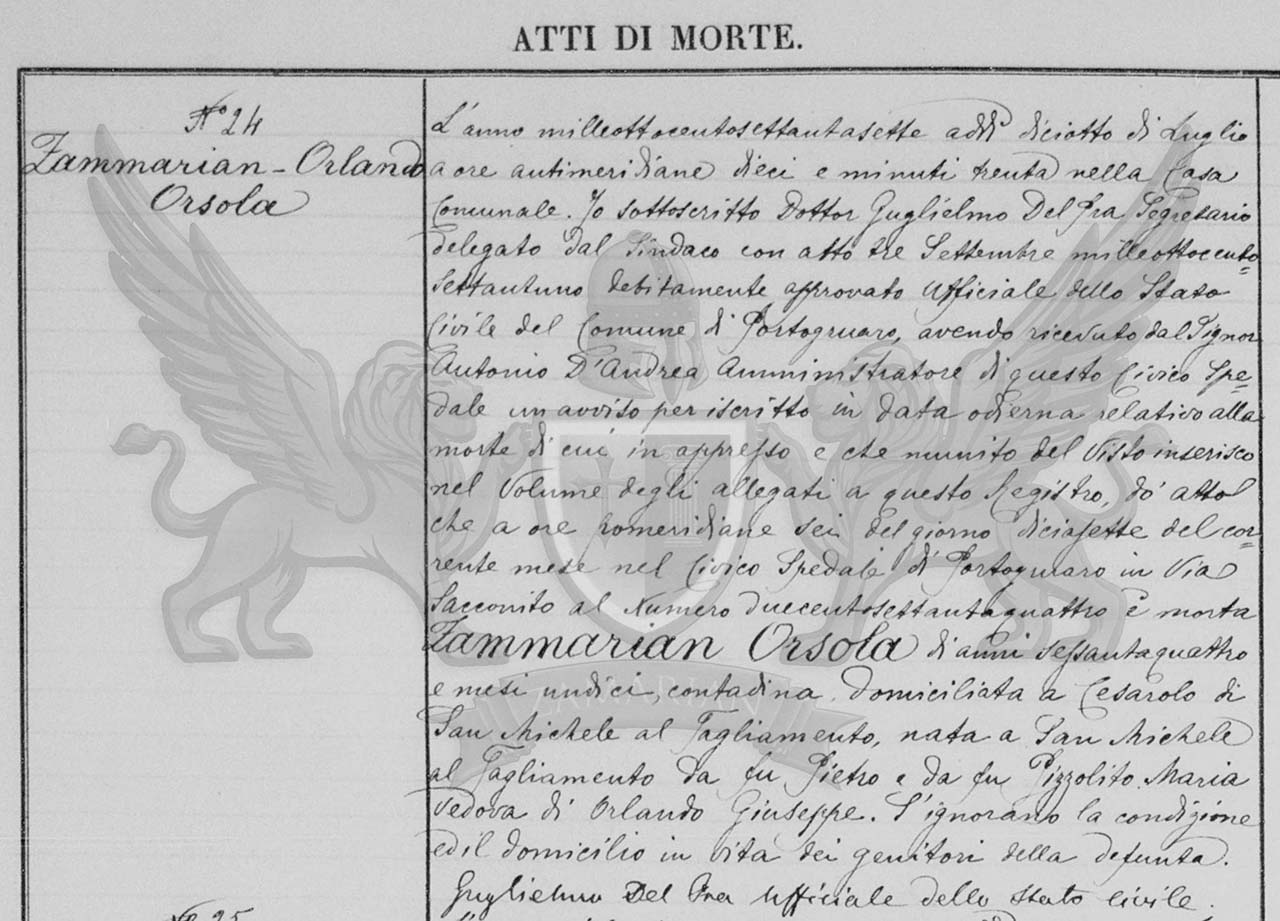 ATTI DI MORTE.
Nº 24
Zammarian - Orlando
Orsola
L'anno milleottocentosettantasette addì diciotto di Luglio
a ore antimeridiane dieci e minuti trenta nella Casa
Comunale. Io sottoscritto Dottor Guglielmo Del Pra Segretario
delegato dal Sindaco con atto tre Settembre milleottocento=
settantuno debitamente approvato Ufficiale dello Stato
Civile del Comune di Portogruaro, avendo ricevuto dal Signor
Antonio D'Andrea Amministratore di questo Civico Spe=
dale un avviso per iscritto in data odierna relativo alla
morte di cui in appresso e che munito del Visto inserisco
nel Volume degli allegati a questo Registro, dò atto
che a ore pomeridiane sei del giorno diciasette del cor=
rente mese nel Civico Spedale di Portogruaro in Via
al Numero duecentosettantaquattro è morta
Zammarian Orsola di anni sessantaquattro
e mesi undici, contadina, domiciliata a Cesarolo di
San Michele al Tagliamento, nata a San Michele
al Tagliamento da fu Pietro e da fu Pizzolito Maria
Vedova di Orlando Giuseppe. S'ignorano la condizione
ed il domicilio in vita dei genitori della defunta.
Guglielmo Del Pra Ufficiale dello Stato Civile.
Nº 25